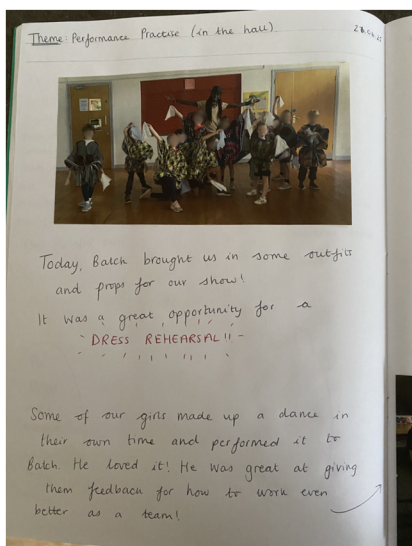 Theme: Performance Practise (in the hall)
Today, Batch brought us in some outfits
and props for our show!
It was a great opportunity for a
DRESS REHEARSAL!!
Some of our girls made up a dance in
their own time and performed it to
Batch. He loved it! He was great at giving
them feedback for how to work even
better as a team!